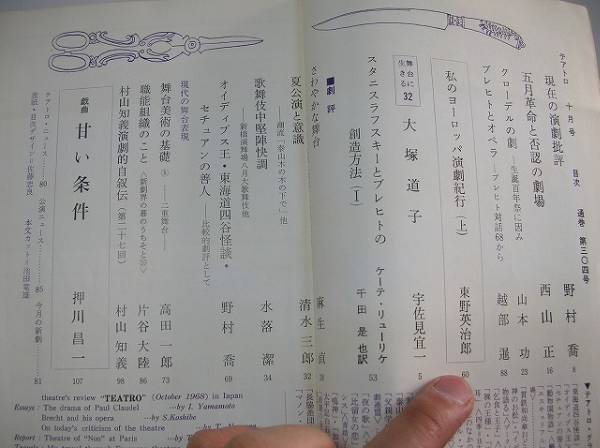 テアトロ 十月号 目次 通巻 第三〇四号
現在の演劇批評 野村喬 8
五月革命と否認の劇場 西山正 16
クローデルの劇 ―生誕百年祭に因み 山本功 23
ブレヒトとオペラ ―ブレヒト対話68から 越部暹 88
私のヨーロッパ演劇紀行(上) 東野英治郎 60
舞台に生きる 32 大塚道子 宇佐見宜一 5
スタニスラフスキーとブレヒトの創造方法(Ⅰ) ケーテ・リューリケ 千田是也訳 53
■劇評
さわやかな舞台 麻生直
夏公演と意識 ―潮流「泰山木の木の下で」他 清水三郎 32
歌舞伎中堅陣快調 ―新橋演舞場八月大歌舞伎他 水落潔 34
オイディプス王・東海道四谷怪談・セチュアンの善人 ―比較的劇評として 野村喬 69
現代の舞台表現
舞台美術の基礎 ⑤ ―二重舞台― 高田一郎 73
職能組織のこと 片谷大陸 86
村山知義演劇的自叙伝(第二十七回) 村山知義 98
戯曲 甘い条件 押川昌一 107
テアトロ・ニュース……80 公演ニュース……85 今月の新劇……81
表紙・目次デザイン=佐藤忠良 本文カット=池田竜雄
theatre's review "TEATRO" (October 1968) in Japan
Essays : The drama of Paul Claudel —by I. Yamamoto
Brecht and his opera —by S.Koshibe
On today's criticism of the theatre
Report : Theatre of "Non" at Paris